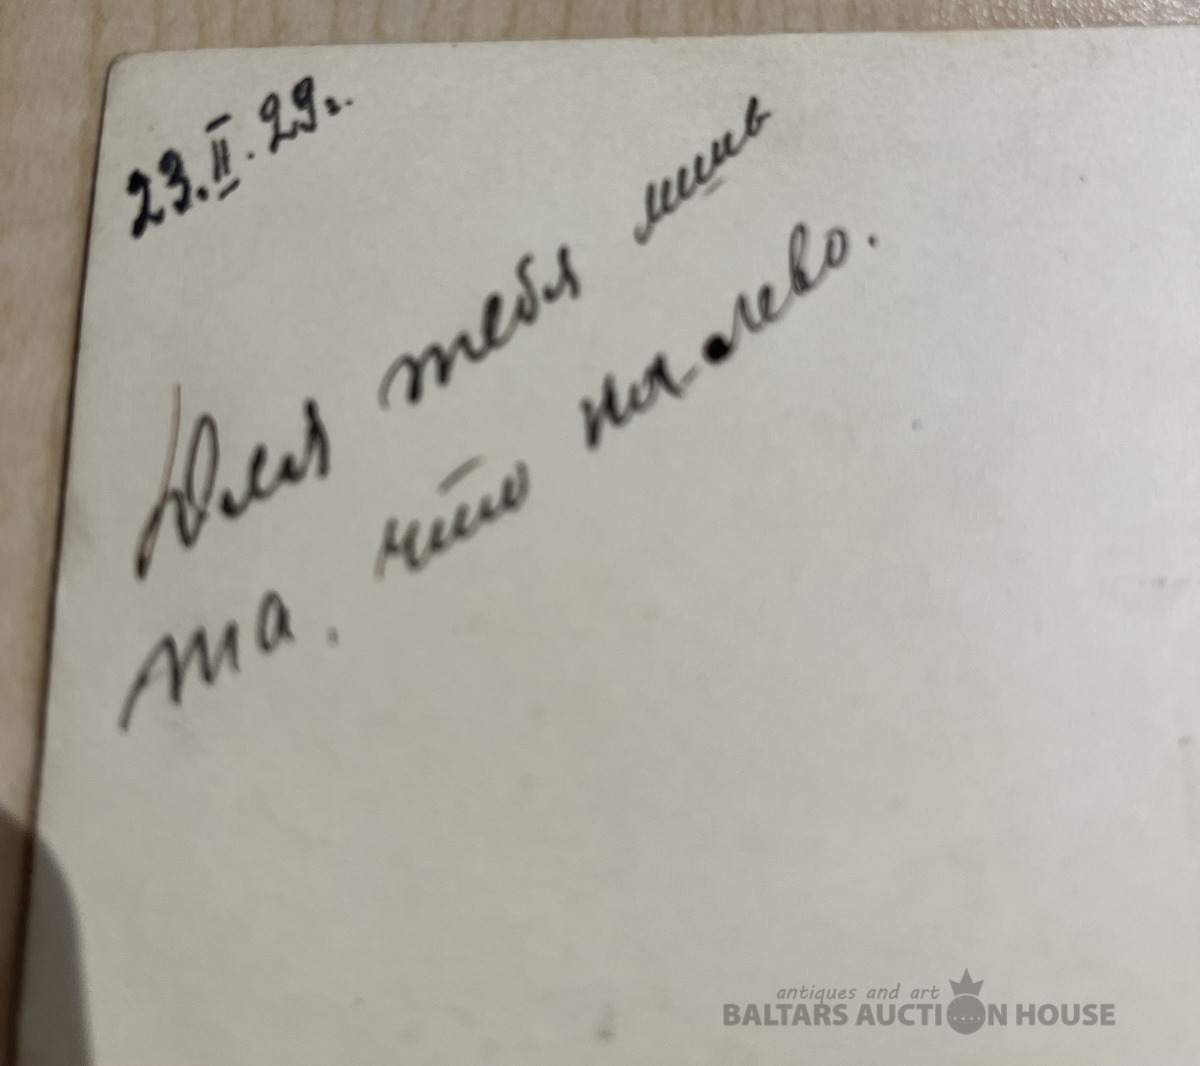 23.II.29г.
Для тебя лишь
та. что на лево.
antiques and art
BALTARS AUCTION HOUSE